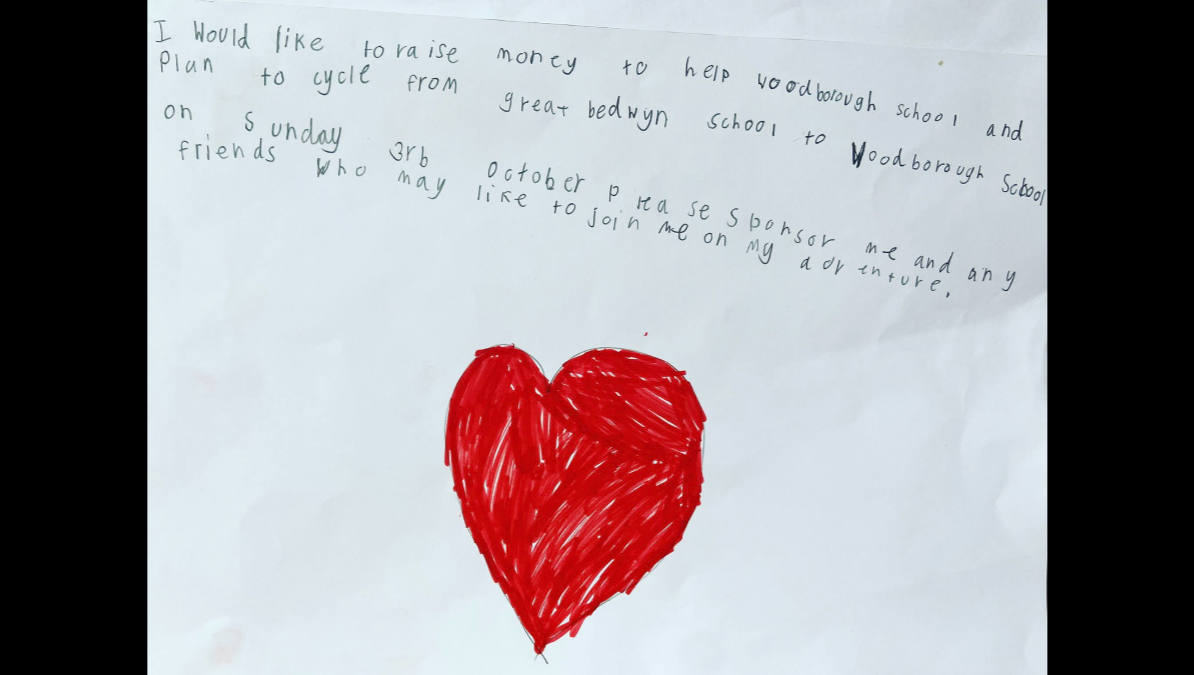 I would like to raise money to help woodborough school and
Plan to cycle from great bedwyn school to Woodborough School
on Sunday 3rb october please sponsor me and any
friends who may like to join me on my adventure.